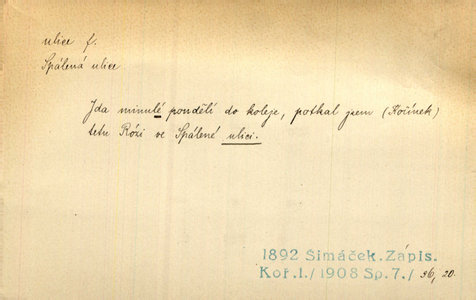 ulice f.
Spálená ulice
Jda minulé pondělí do koleje, potkal jsem (Kořínek)
tetu Rózi ve Spálené ulici.
1892 Šimáček. Zápis.
Koř. I./1908 Sp. 7./ 36, 20.